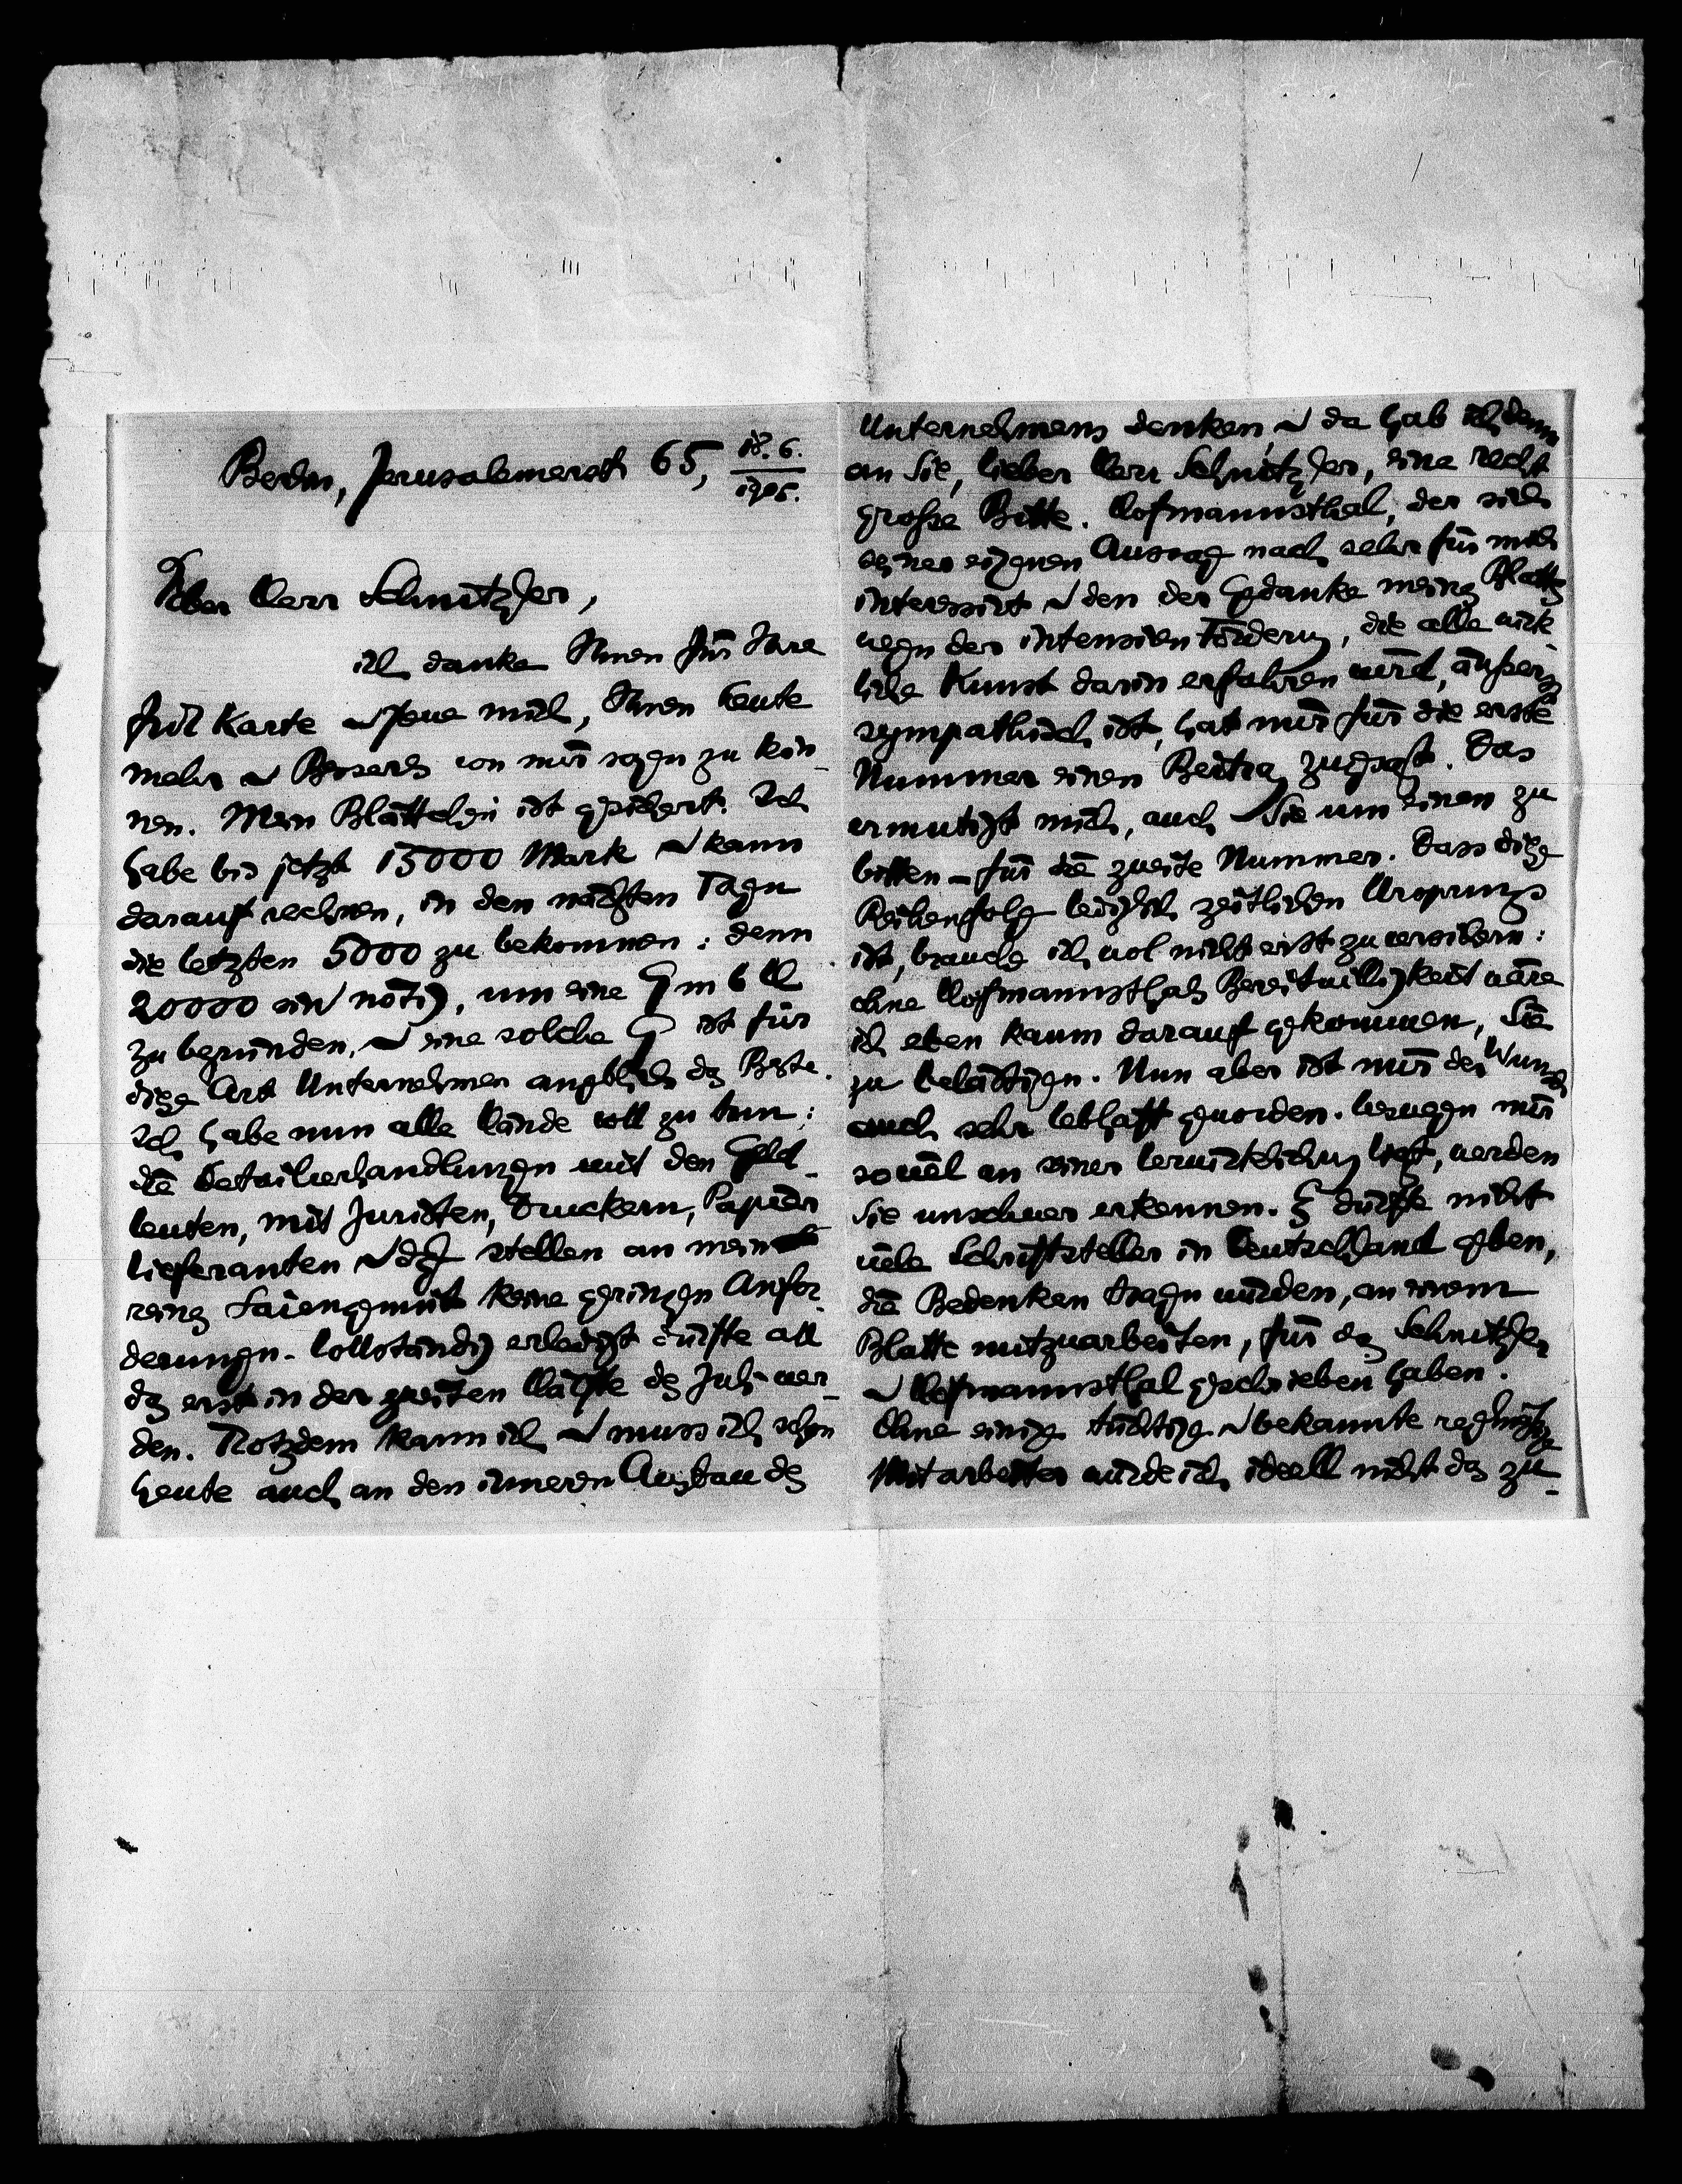 Berlin, Jerusalemerstr 65, 18. 6.
1905.
Lieber Herr Schnitzler,
ich danke Ihnen für Ihre
Karte u freue mich, Ihnen heute
mehr u Besseres von mir sagen zu kön-
nen. Mein Blättchen ist gesichert. Ich
habe bis jetzt 15000 Mark u kann
darauf rechnen, in den nächsten Tagen
die letzten 5000 zu bekommen: denn
20000 sind nötig, um eine G m b H
zu begründen, u eine solche G ist für
diese Art Unternehmen angeblich das Beste.
Ich habe nun alle Hände voll zu tun:
die Detailverhandlungen mit den Geld-
leuten, mit Juristen, Druckern, Papier
lieferanten u dgl stellen an mein
reines Laiengemüt keine geringen Anfor-
derungen. Vollständig erledigt dürfte all
das erst in der zweiten Hälfte des Juli wer-
den. Trotzdem kann ich u muss ich schon
heute auch an den inneren Ausbau des
Unternehmens denken, u da hab ich denn
an Sie, lieber Herr Schnitzler, eine recht
große Bitte. Hofmannsthal, der sich
seiner eigenen Aussag nach sehr für mich
interessirt u dem der Gedanke meines Blattes
wegen der intensiven Förderung, die alle wirk-
liche Kunst darin erfahren wird, äußerst
sympathisch ist, hat mir für die erste
Nummer einen Beitrag zugesagt. Das
ermutigt mich, auch Sie um einen zu
bitten – für die zweite Nummer. Dass diese
Reihenfolge lediglich zeitlichen Ursprungs
ist, brauche ich wol nicht erst zu versichern:
ohne Hofmannsthals Bereitwilligkeit wäre
ich eben kaum darauf gekommen, Sie
zu belästigen. Nun aber ist mir der Wunsch
auch sehr lebhaft geworden. Weswegen mir
soviel an seiner Verwirklichung liegt, werden
Sie unschwer erkennen. Es dürfte nicht
viele Schriftsteller in Deutschland geben,
die Bedenken tragen würden, an einem
Blatte mitzuarbeiten, für das Schnitzler
u Hofmannsthal geschrieben haben.
Ohne einige tüchtige u bekannte regelmäßige
Mitarbeiter würde ich ideell nicht das zu-